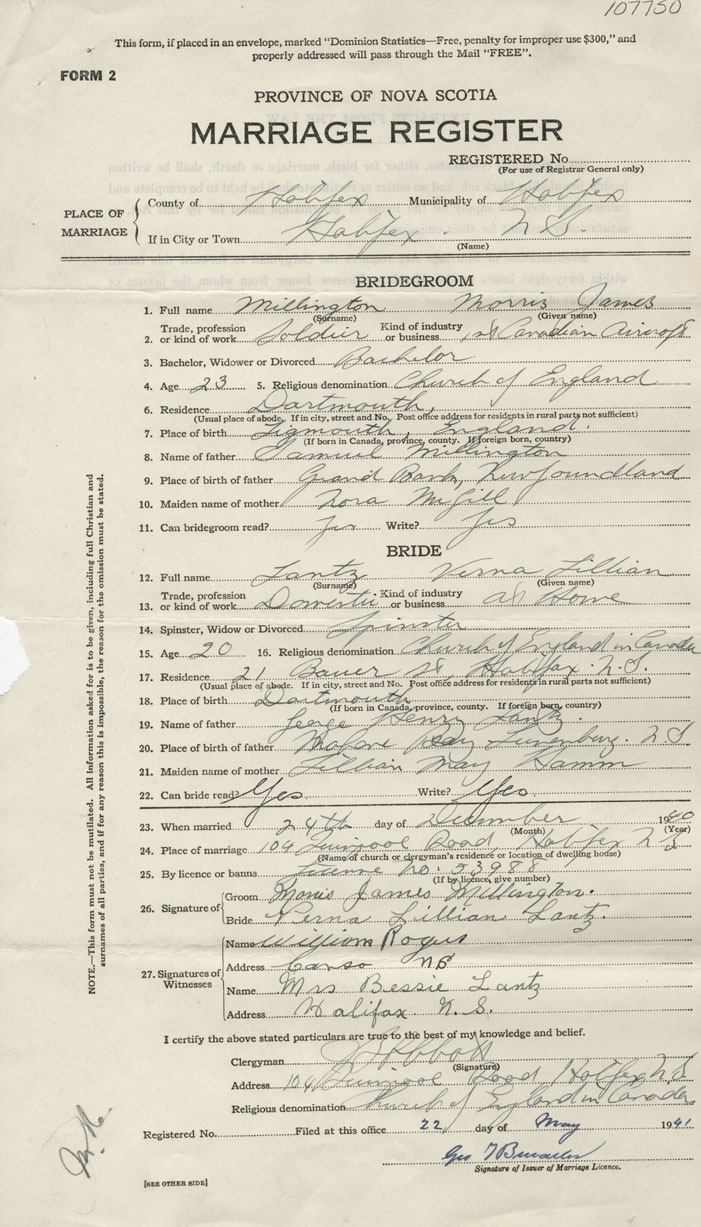 107750
This form, if placed in an envelope, marked "Dominion Statistics—Free, penalty for improper use $300," and
properly addressed will pass through the Mail "FREE".
FORM 2
PROVINCE OF NOVA SCOTIA
MARRIAGE REGISTER
REGISTERED No.
(For use of Registrar General only)
PLACE OF MARRIAGE
County of Halifax Municipality of Halifax
If in City or Town Halifax N.S.
(Name)
BRIDEGROOM
1. Full name Millington Morris James
(Surname) (Given name)
2. Trade, profession or kind of work Soldier Kind of industry or business 1st Canadian Aircraft
3. Bachelor, Widower or Divorced Bachelor
4. Age 23 5. Religious denomination Church of England
6. Residence Dartmouth,
(Usual place of abode. If in city, street and No. Post office address for residents in rural parts not sufficient)
7. Place of birth England.
(If born in Canada, province, county. If foreign born, country)
8. Name of father Samuel Millington
9. Place of birth of father Grand Bank, Newfoundland
10. Maiden name of mother Nora McGill
11. Can bridegroom read? Yes Write? Yes
BRIDE
12. Full name Lantz Verna Lillian
(Surname) (Given name)
13. Trade, profession or kind of work Domestic Kind of industry or business at Home
14. Spinster, Widow or Divorced Spinster
15. Age 20 16. Religious denomination Church of England in Canada
17. Residence 21 Bauer St, Halifax. N.S.
(Usual place of abode. If in city, street and No. Post office address for residents in rural parts not sufficient)
18. Place of birth Dartmouth
(If born in Canada, province, county. If foreign born, country)
19. Name of father George Henry Lantz.
20. Place of birth of father Lunenburg. N.S
21. Maiden name of mother Lillian May Hamm
22. Can bride read? Yes Write? Yes.
23. When married 24th day of December 1940
(Month) (Year)
24. Place of marriage 104 Quinpool Road, Halifax N.S
(Name of church or clergyman's residence or location of dwelling house)
25. By licence or banns License no. 53988
(If by licence, give number)
26. Signature of
Groom Morris James Millington.
Bride Verna Lillian Lantz.
27. Signatures of Witnesses
Name William Rogers
Address Canso NS
Name Mrs Bessie Lantz
Address Halifax N.S.
I certify the above stated particulars are true to the best of my knowledge and belief.
Clergyman Abbott
(Signature)
Address 104 Quinpool Road Halifax N.S
Religious denomination Church of England in Canada
Registered No. Filed at this office 22 day of May 1941
Geo
Signature of Issuer of Marriage Licence.
[SEE OTHER SIDE]
NOTE.—This form must not be mutilated. All information asked for is to be given, including full Christian and
surnames of all parties, and if for any reason this is impossible, the reason for the omission must be stated.